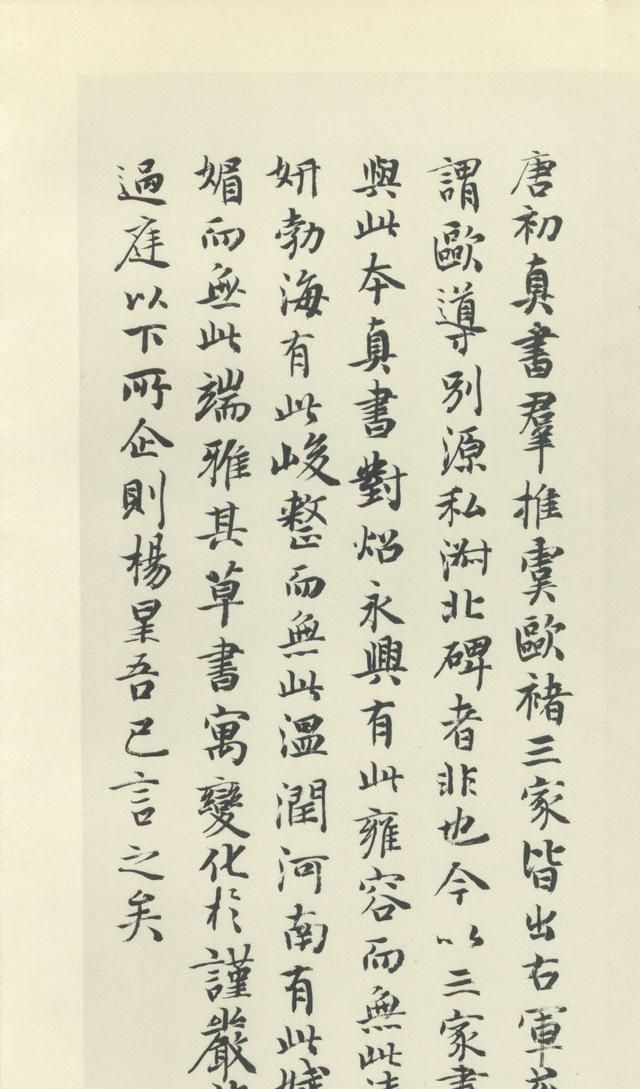 唐初真書羣推虞歐褚三家皆出右軍
謂歐導別源私淑北碑者非也今以三家書
與此本真書對炤永興有此雍容而無此
妍勃海有此峻整而無此溫潤河南有此
媚而無此端雅其草書寓變化於謹嚴
過庭以下所企則楊星吾已言之矣